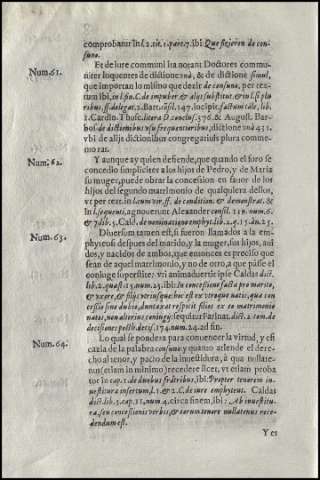 comprobatur in l.2.tit.1.part.7.ibi: Que fizieron de con-
suno.
Num.61.
Et de iure communi ita notant Doctores commu-
niter loquentes de dictione unà, & de dictione simul,
que importan lo mismo que dezir de consuno, per tex-
tum in l. fin. C. de impuber. & alijs substitut. & in l. si plu
ribus, ff. de legat. 2. Bart. consil. 147. incipit. factum tale, lib.
2. Cardin. Thusc. litera D. conclus. 376. & August. Bar-
bos. de dictionibus usu frequentioribus, dictione unà 431.
ubi de alijs dictionibus congregativis plura comme
morat.
Num.62.
Y aunque ay quien defiende, que quando el foro se
concedio simpliciter a los hijos de Pedro, y de Maria
su muger, puede obrar la concession en fauor de los
hijos del segundo matrimonio de qualquiera dellos,
ut per text. in l. cum vir, ff. de condition. & demonstrat. &
in l. sequenti, agnouerunt Alexander consil. 119. num. 6.
& 7. lib. 5. Cald. de nominatione emphyt. lib. 2. q. 15. nu. 25.
Num.63.
Diuersum tamen est, si fueron llamados a la em-
phyteosi despues del marido, y la muger, sus hijos, aui
dos, y nacidos de ambos, que entonces es preciso que
sean de aquel matrimonio, y no de otro, a que passe el
coniuge superstite: uti animaduertit ipse Caldas dict.
lib. 2. quæst. 15. num. 25. ibi: In concessione facta pro marito,
& uxore, & filijs utriusque: hoc est ex utroque natis, qua con
cessio sine dubio, dumtaxat respicit filios ex eo matrimonio
natos, non alterius coniugij, sequitur Farinac. dict. 2. tom. de
decisiones posth. decis. 174. num. 24. ad fin.
Num.64.
Lo qual se pondera para comuencer la virtud, y efi
cazia de la palabra consuno y quanto atiende el dere-
cho al tenor, y pacto de la inuestidura, à qua nullate-
nus (etiam in minimo) recedere licet, ut etiam proba
tor in cap. 1. de duobus fratribus, ibi: Propter tenorem in-
uestitura insertum, l. 1. & 2. C. de iure emphyteut. Caldas
dict. lib. 3. cap. 11. num. 4. circa finem, ibi: Ab inuestitu-
ra, seu concessionis verbis, & earum tenore nullatenus rece-
dendum est.
Y es